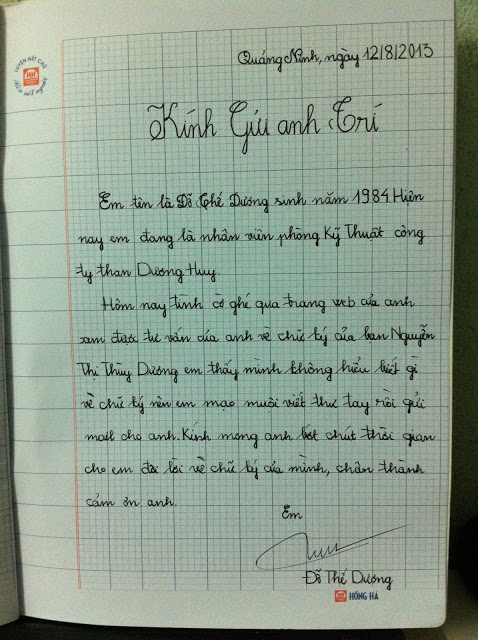 LUYỆN NÉT CHỮ
HH
Quảng Ninh, ngày 12/8/2013
Kính Gửi anh Trí
Em tên là Đỗ Thế Dương sinh năm 1984. Hiện
nay em đang là nhân viên phòng Kỹ Thuật công
ty than Dương Huy.
Hôm nay tình cờ ghé qua trang web của anh
xem được tư vấn của anh về chữ ký của bạn Nguyễn
Thị Thùy Dương em thấy mình không hiểu biết gì
về chữ ký nên em mạo muội viết thư tay rồi gửi
mail cho anh. Kính mong anh bớt chút thời gian
cho em đôi lời về chữ ký của mình, chân thành
cảm ơn anh.
Em
Đỗ Thế Dương
HỒNG HÀ